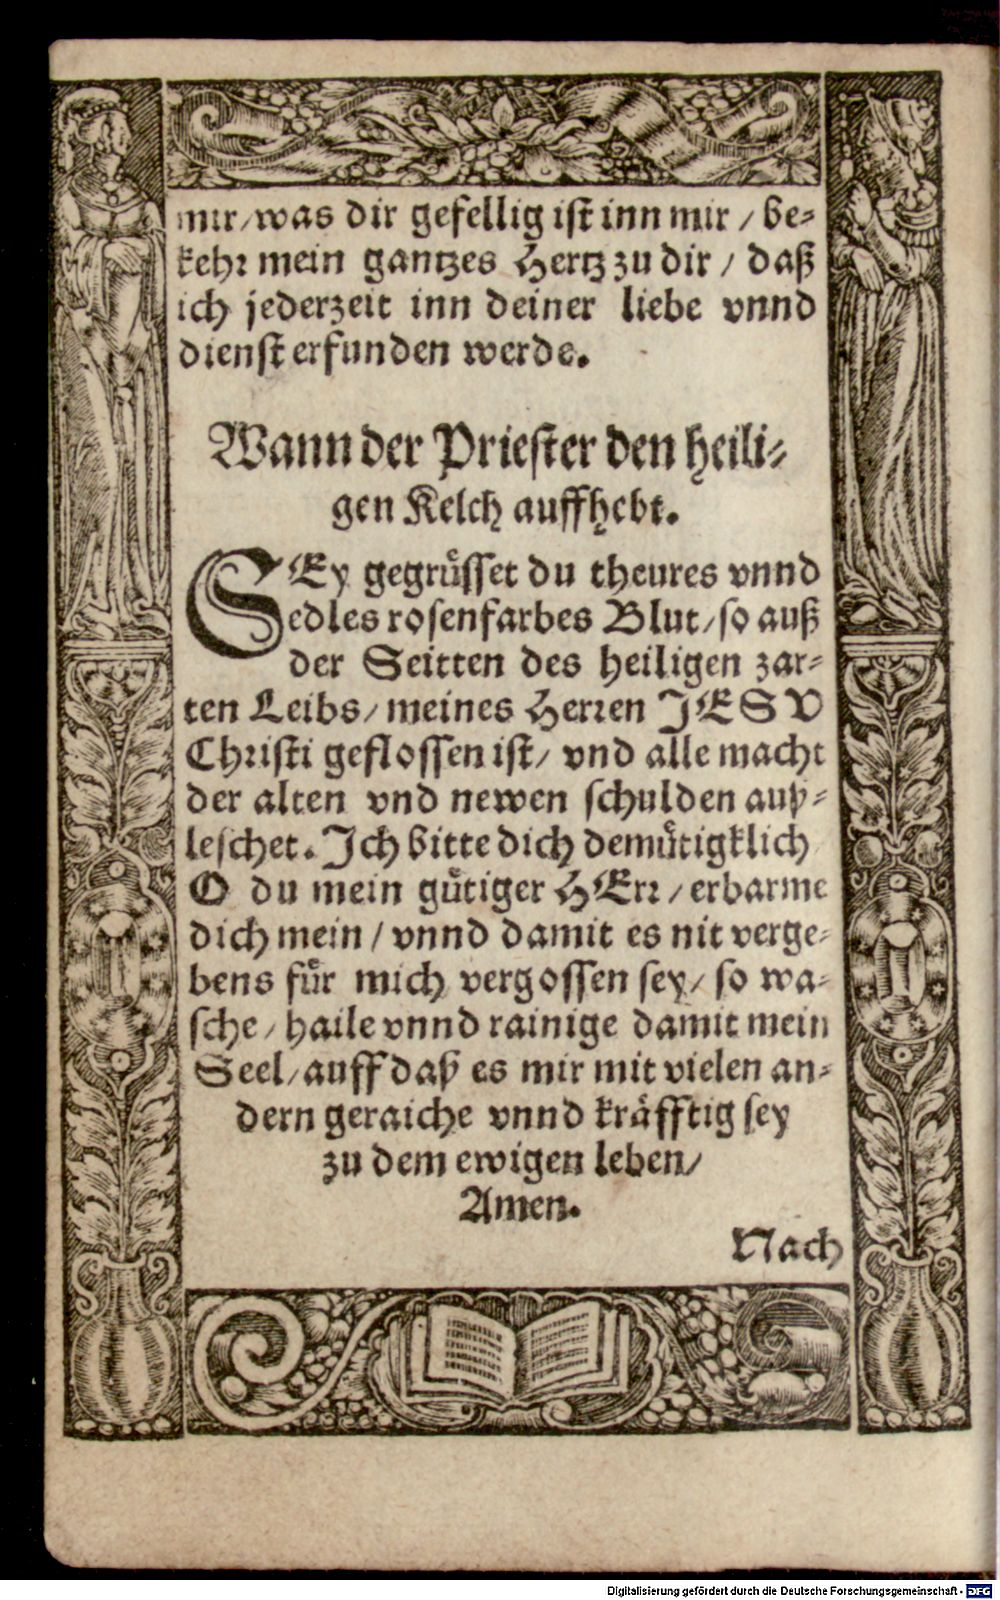 mir/was dir gefellig ist inn mir / be⸗
kehr mein gantzes Hertz zu dir / daß
ich jederzeit inn deiner liebe vnnd
dienst erfunden werde.
Wann der Priester den heili⸗
gen Kelch auffhebt.
SEy gegrüsset du theures vnnd
edles rosenfarbes Blut/so auß
der Seitten des heiligen zar⸗
ten Leibs/meines Herren JESV
Christi geflossen ist/ vnd alle macht
der alten vnd newen schulden auß⸗
leschet. Ich bitte dich demütigklich
O du mein gütiger HErr/erbarme
dich mein/vnnd damit es nit verge⸗
bens für mich vergossen sey/ so wa⸗
sche/haile vnnd rainige damit mein
Seel/auff daß es mir mit vielen an⸗
dern geraiche vnnd kräfftig sey
zu dem ewigen leben/
Amen.
Nach
Digitalisierung gefördert durch die Deutsche Forschungsgemeinschaft - DFG